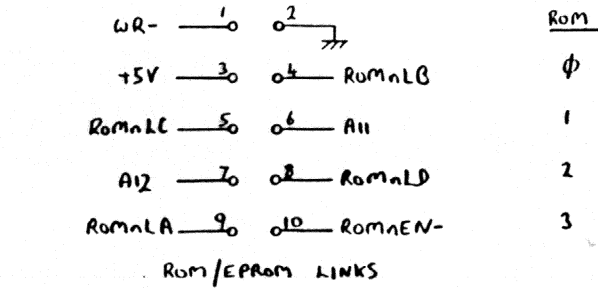 WR- 1 2 ROM
+5V 3 4 ROMnLB φ
ROMnLC 5 6 A11 1
A12 7 8 ROMnLD 2
ROMnLA 9 10 ROMnEN- 3
ROM/EPROM LINKS